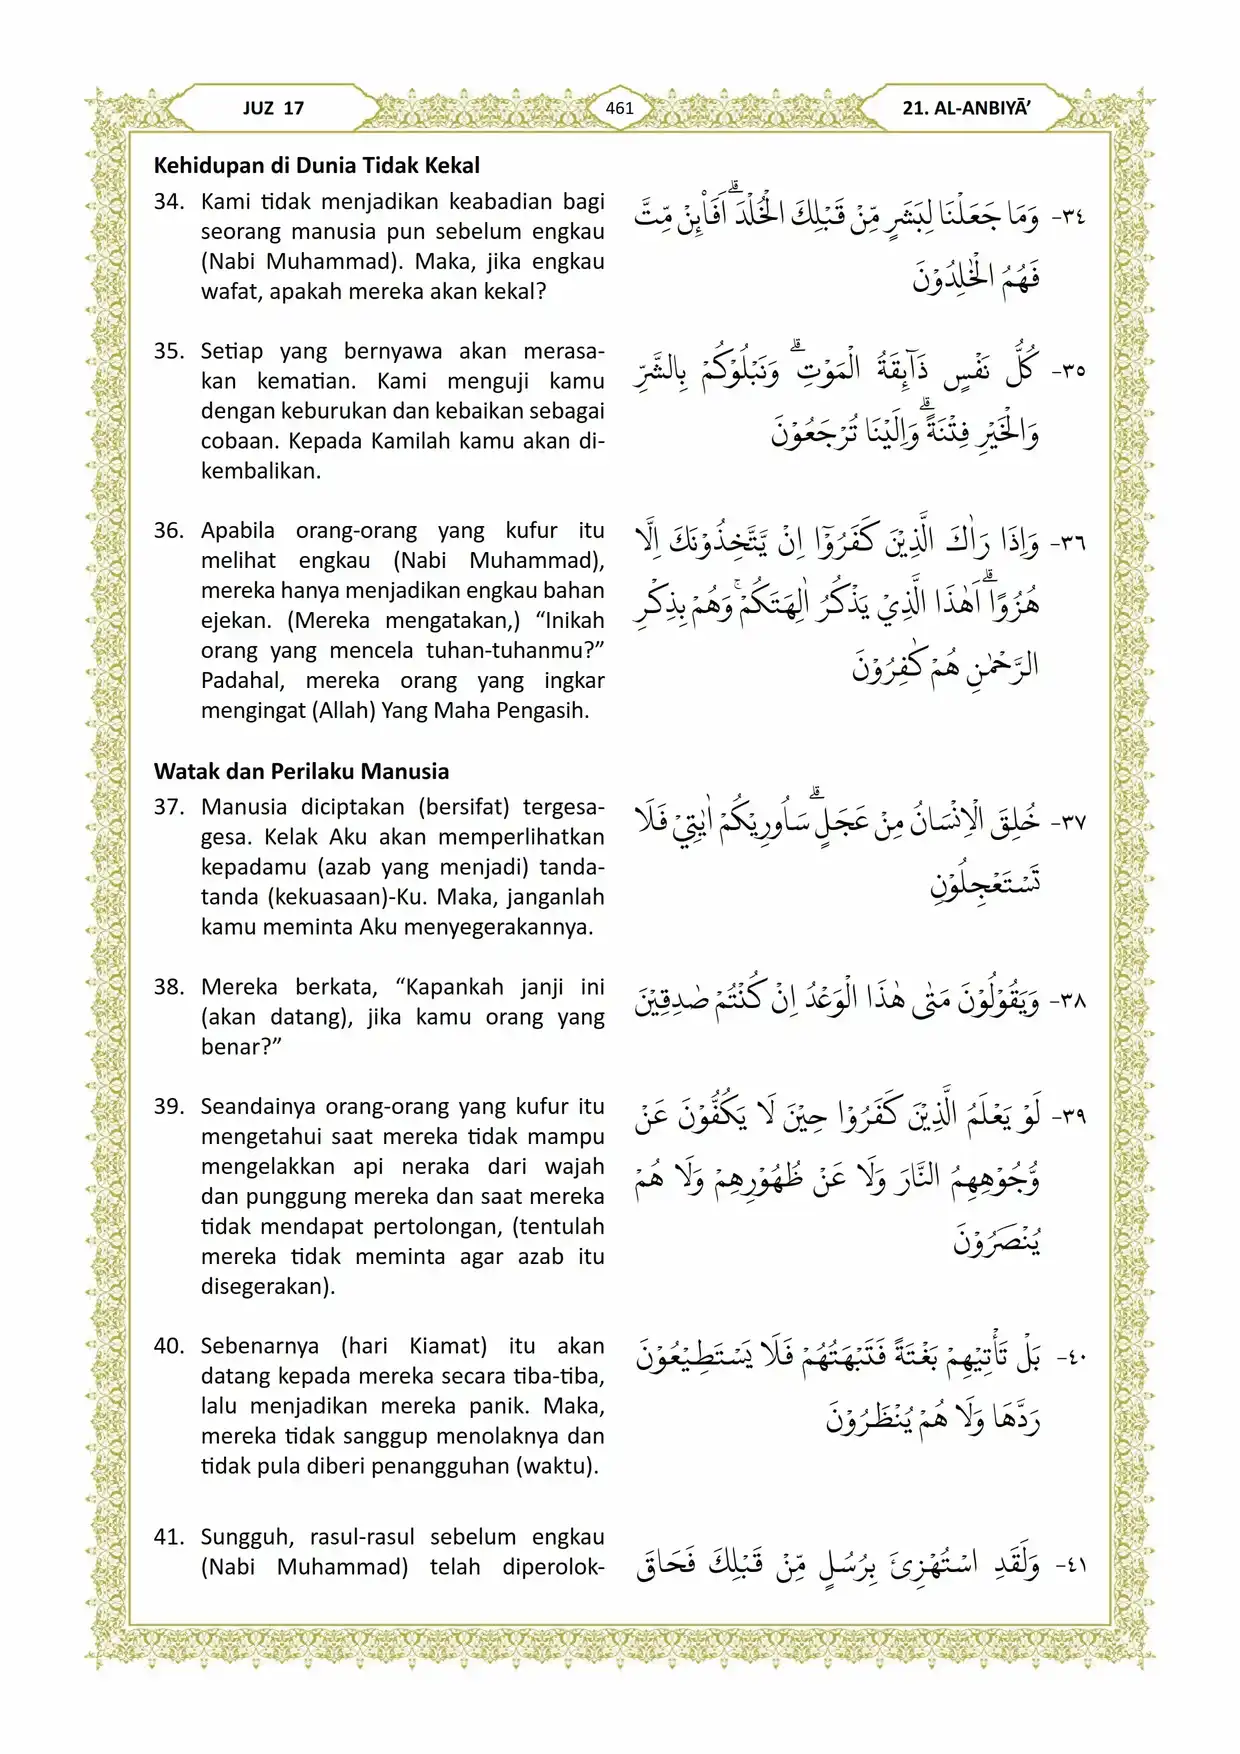 JUZ 17
461
21. AL-ANBIYĀ’
Kehidupan di Dunia Tidak Kekal
34. Kami tidak menjadikan keabadian bagi
seorang manusia pun sebelum engkau
(Nabi Muhammad). Maka, jika engkau
wafat, apakah mereka akan kekal?
٣٤- وَمَا جَعَلْنَا لِبَشَرٍ مِّنْ قَبْلِكَ الْخُلْدَۗ اَفَا۟ىِٕنْ مِّتَّ
فَهُمُ الْخٰلِدُوْنَ
35. Setiap yang bernyawa akan merasa-
kan kematian. Kami menguji kamu
dengan keburukan dan kebaikan sebagai
cobaan. Kepada Kamilah kamu akan di-
kembalikan.
٣٥- كُلُّ نَفْسٍ ذَاۤىِٕقَةُ الْمَوْتِۗ وَنَبْلُوْكُمْ بِالشَّرِّ
وَالْخَيْرِ فِتْنَةًۗ وَاِلَيْنَا تُرْجَعُوْنَ
36. Apabila orang-orang yang kufur itu
melihat engkau (Nabi Muhammad),
mereka hanya menjadikan engkau bahan
ejekan. (Mereka mengatakan,) “Inikah
orang yang mencela tuhan-tuhanmu?”
Padahal, mereka orang yang ingkar
mengingat (Allah) Yang Maha Pengasih.
٣٦- وَاِذَا رَاٰكَ الَّذِيْنَ كَفَرُوْٓا اِنْ يَّتَّخِذُوْنَكَ اِلَّا
هُزُوًاۗ اَهٰذَا الَّذِيْ يَذْكُرُ اٰلِهَتَكُمْۚ وَهُمْ بِذِكْرِ
الرَّحْمٰنِ هُمْ كٰفِرُوْنَ
Watak dan Perilaku Manusia
37. Manusia diciptakan (bersifat) tergesa-
gesa. Kelak Aku akan memperlihatkan
kepadamu (azab yang menjadi) tanda-
tanda (kekuasaan)-Ku. Maka, janganlah
kamu meminta Aku menyegerakannya.
٣٧- خُلِقَ الْاِنْسَانُ مِنْ عَجَلٍۗ سَاُورِيْكُمْ اٰيٰتِيْ فَلَا
تَسْتَعْجِلُوْنِ
38. Mereka berkata, “Kapankah janji ini
(akan datang), jika kamu orang yang
benar?”
٣٨- وَيَقُوْلُوْنَ مَتٰى هٰذَا الْوَعْدُ اِنْ كُنْتُمْ صٰدِقِيْنَ
39. Seandainya orang-orang yang kufur itu
mengetahui saat mereka tidak mampu
mengelakkan api neraka dari wajah
dan punggung mereka dan saat mereka
tidak mendapat pertolongan, (tentulah
mereka tidak meminta agar azab itu
disegerakan).
٣٩- لَوْ يَعْلَمُ الَّذِيْنَ كَفَرُوْا حِيْنَ لَا يَكُفُّوْنَ عَنْ
وُّجُوْهِهِمُ النَّارَ وَلَا عَنْ ظُهُوْرِهِمْ وَلَا هُمْ
يُنْصَرُوْنَ
40. Sebenarnya (hari Kiamat) itu akan
datang kepada mereka secara tiba-tiba,
lalu menjadikan mereka panik. Maka,
mereka tidak sanggup menolaknya dan
tidak pula diberi penangguhan (waktu).
٤٠- بَلْ تَأْتِيْهِمْ بَغْتَةً فَتَبْهَتُهُمْ فَلَا يَسْتَطِيْعُوْنَ
رَدَّهَا وَلَا هُمْ يُنْظَرُوْنَ
41. Sungguh, rasul-rasul sebelum engkau
(Nabi Muhammad) telah diperolok-
٤١- وَلَقَدِ اسْتُهْزِئَ بِرُسُلٍ مِّنْ قَبْلِكَ فَحَاقَ